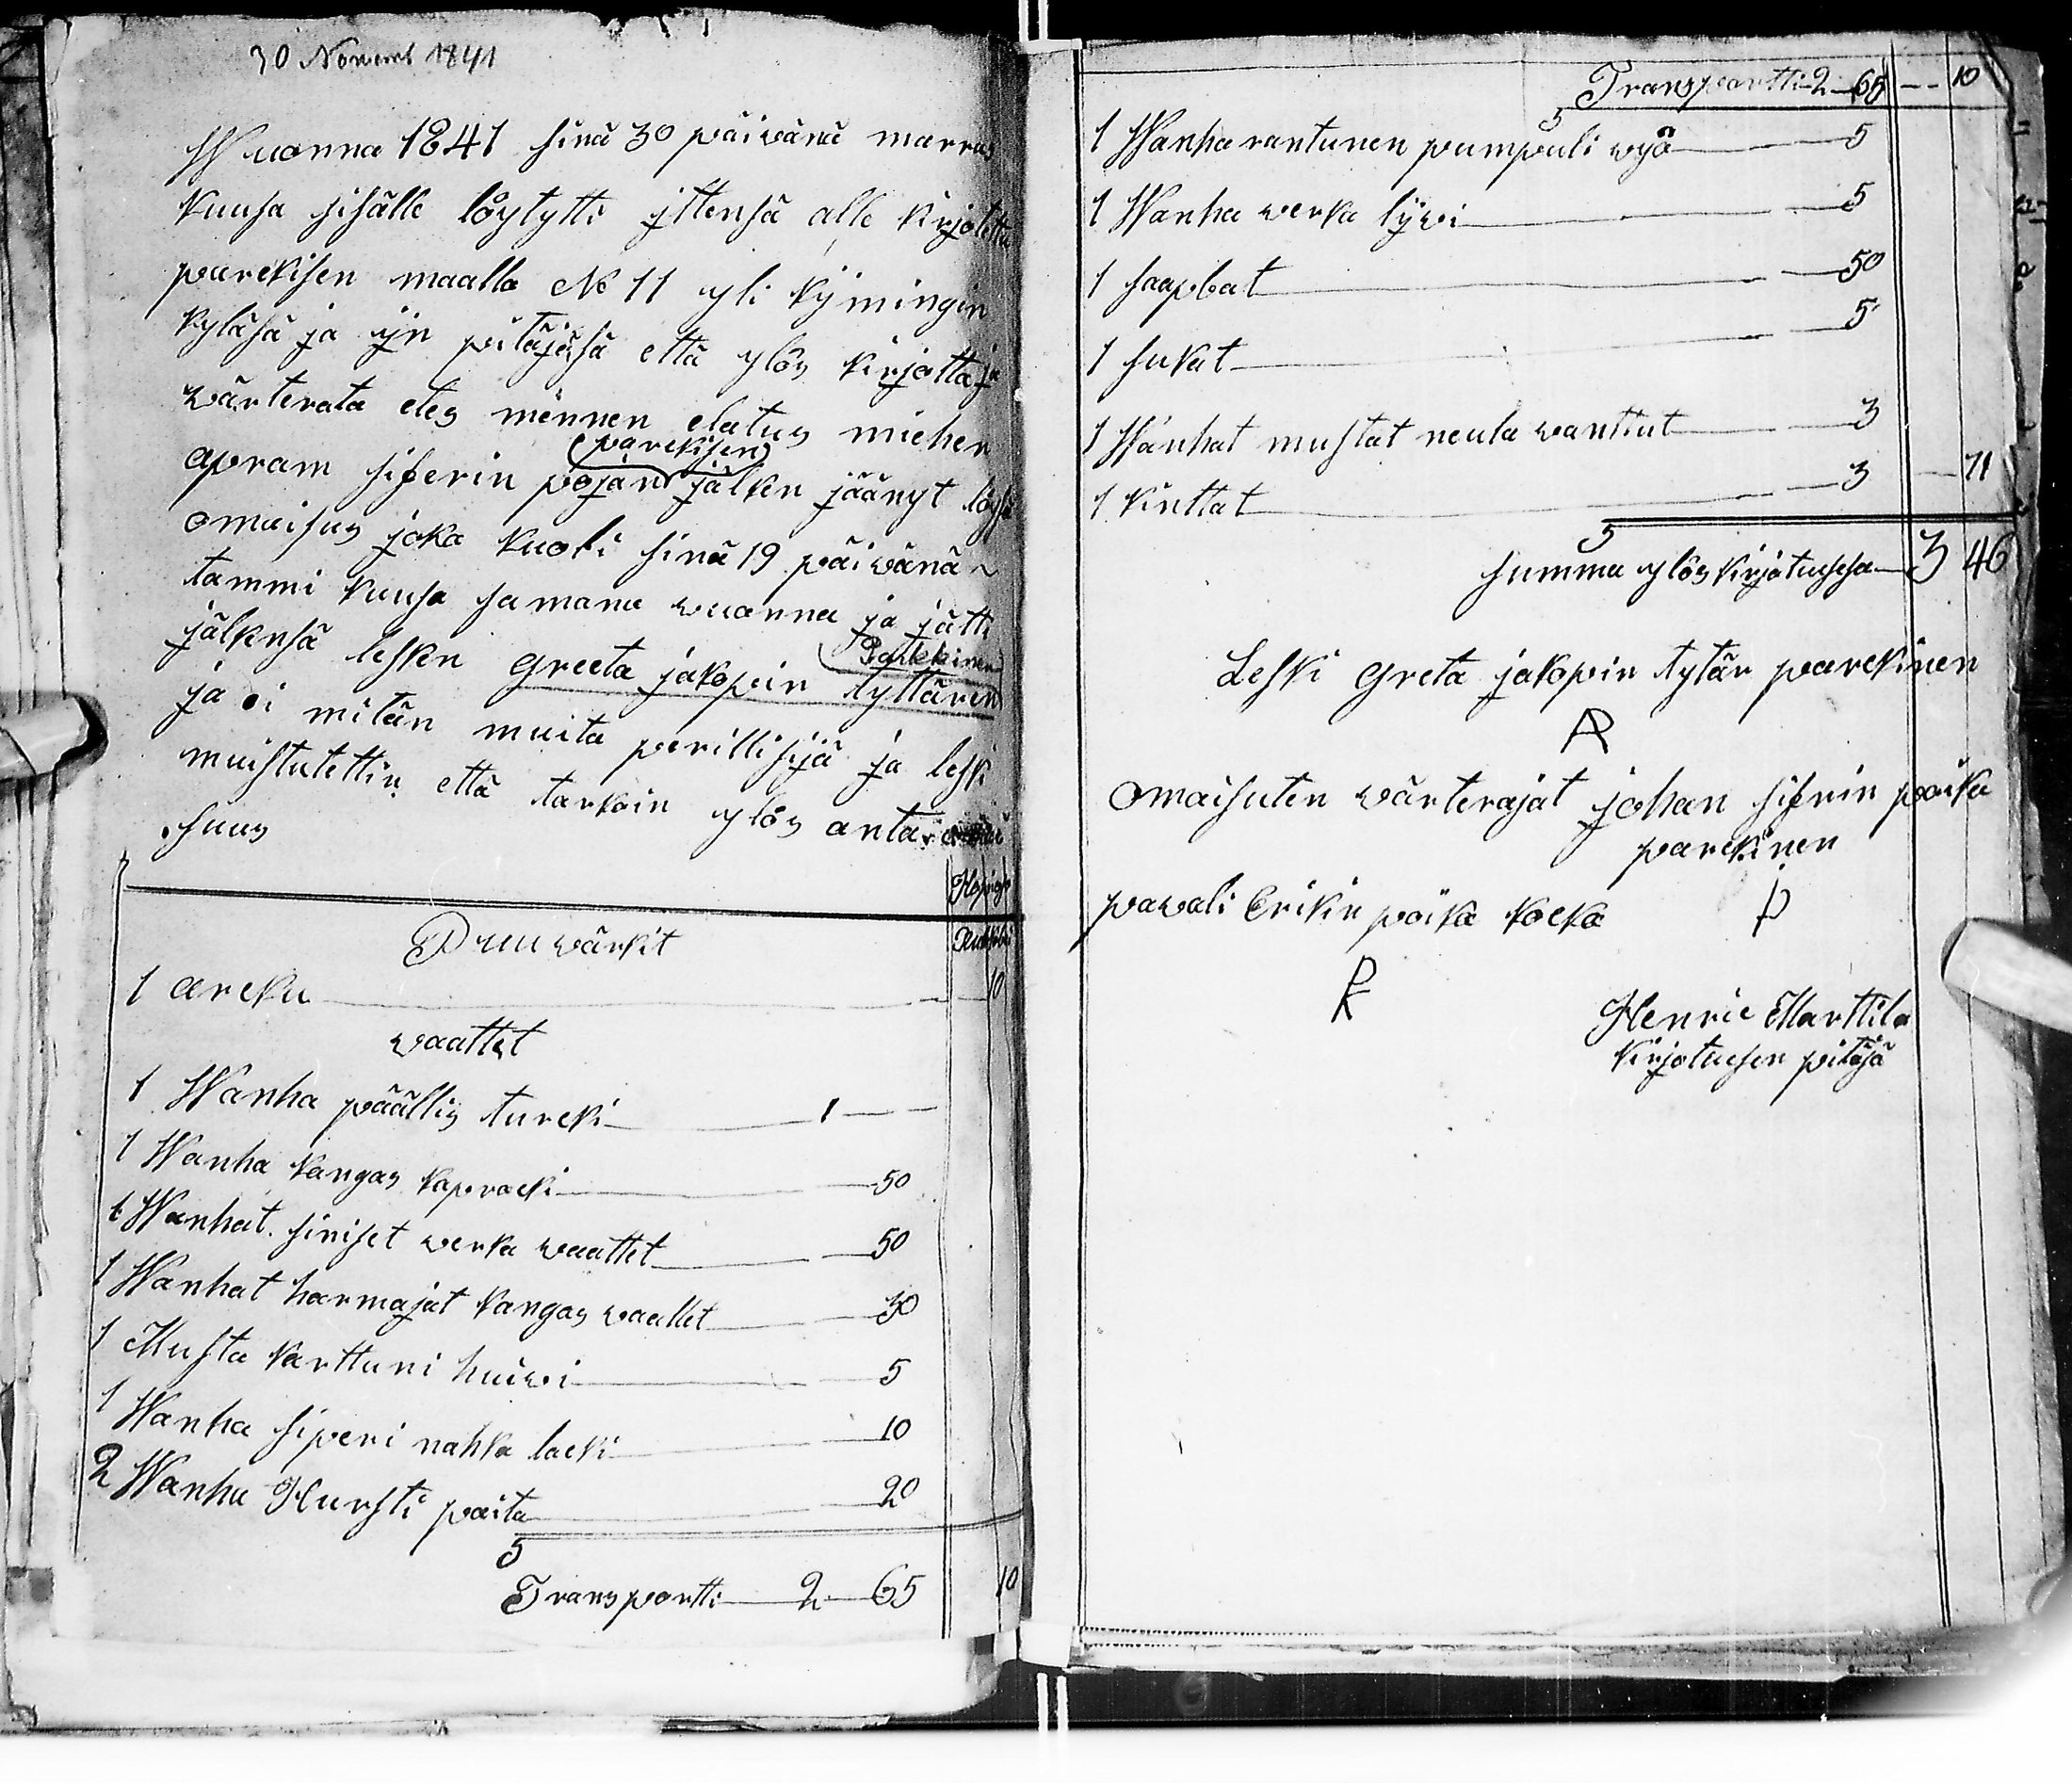 30 Novemb 1841
Wuonna 1841 sinä 30 päiwänä marras
kuusa sisälle löytytti ittensä alle kirjotettu
parekisen maalla No 11 yli kijmingin
kyläsä ja ijn pitäjäsä että ylös kirjotta ja
wärterata etes männen elatus miehen
parekisen
apram siferin pojan jälken jäänyt löysä
omaisus joka kuoli sinä 19 päiwänä
tammi kuusa samana wuonna ja jätti
Parkkinen
jälkensä lesken greeta jakopin tyttären
ja ei mitän muita perillisijä ja leski
muistutettin että tarkoin ylös anta
suus
Hopias
Ruplisa
Puu wärkit
1 areku 10
waattet
1 Wanha päällis tureki 1
1 Wanha kangas kaproeki 50
1 Wanhat siniset werka waattet 50
1 Wanhat harmajat kangas waattet 30
1 Musta karttuni huiwi 5
1 Wanha siperi nahka lacki 10
2 Wanha Hursti paita 20
5
Transportti 2 65 10
Transportti 2 65 10
5
1 Wanha rantunen pumpuli wyä 5
1 Wanha werka lijwi 5
1 saapbat 50
1 sukat 5
1 Wanhat mustat neula wanttut 3
1 kinttat 3 71
5
summa ylöskirjotuxesa 3 46
Leski greta jakopin tytär parekinen
AP
omaisuten wärterajat johan sifrin poika
parekinen
pawali Erikin poika koeka P
PK
Henric Marttila
kirjotuxen pitäjä